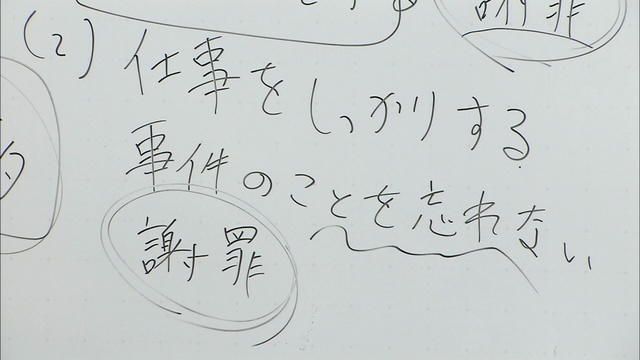 謝罪
(2) 仕事をしっかりする
事件のことを忘れない
謝罪